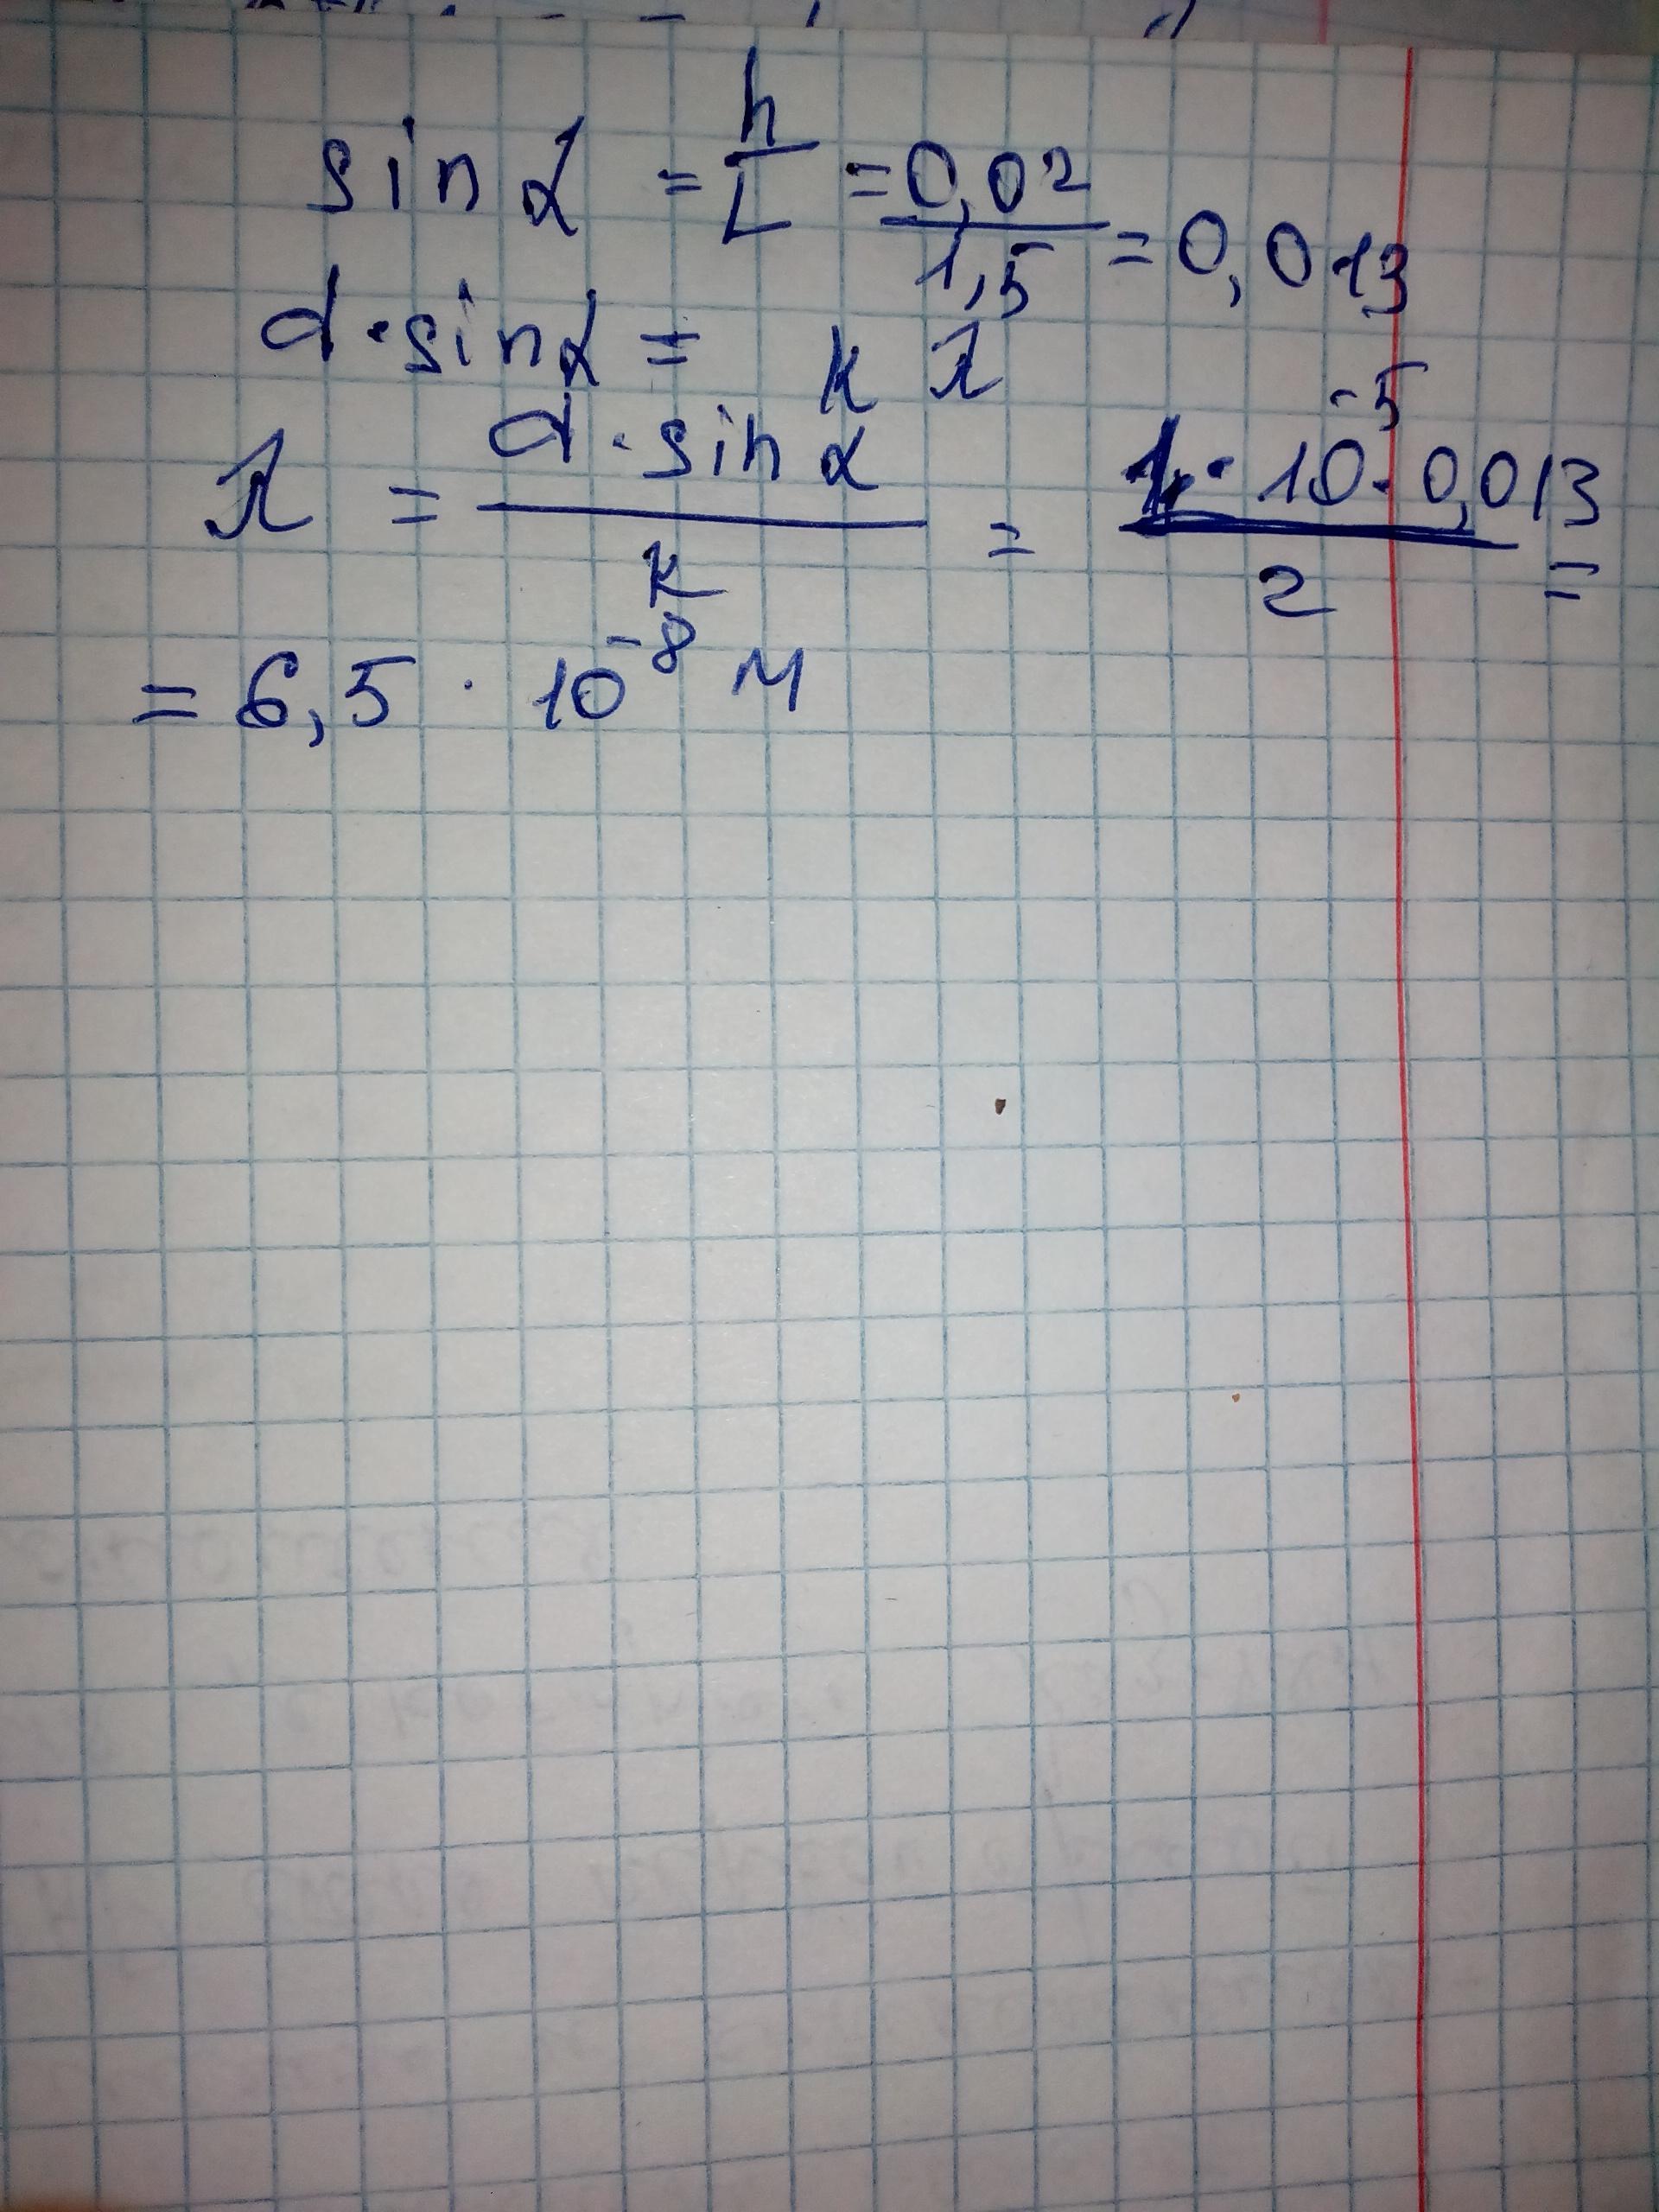 sin α = h/L = 0,02/1,5 = 0,013
d · sin α = k λ
λ = d · sin α / k = 1 · 10⁻⁵ · 0,013 / 2 =
= 6,5 · 10⁻⁸ м